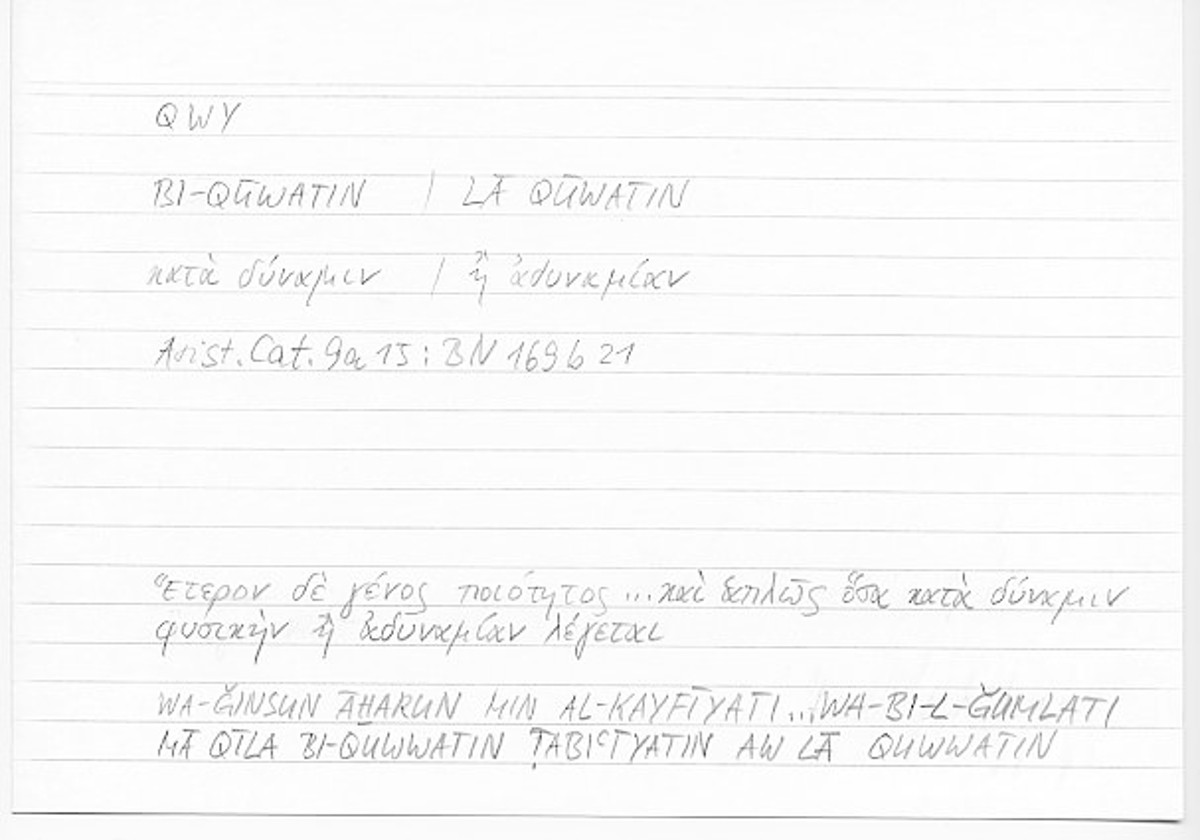 QWY
BI-QŪWATIN | LĀ QŪWATIN
κατὰ δύναμιν | ἢ ἀδυναμίαν
Arist. Cat. 9a 15 : BN 169 b 21
Ἕτερον δὲ γένος ποιότητος ... καὶ ἁπλῶς ὅσα κατὰ δύναμιν
φυσικὴν ἢ ἀδυναμίαν λέγεται
WA-ǦINSUN ĀḪARUN MIN AL-KAYFĪYATI ... WA-BI-L-ǦUMLATI
MĀ QĪLA BI-QUWWATIN ṬABIʿĪYATIN AW LĀ QUWWATIN